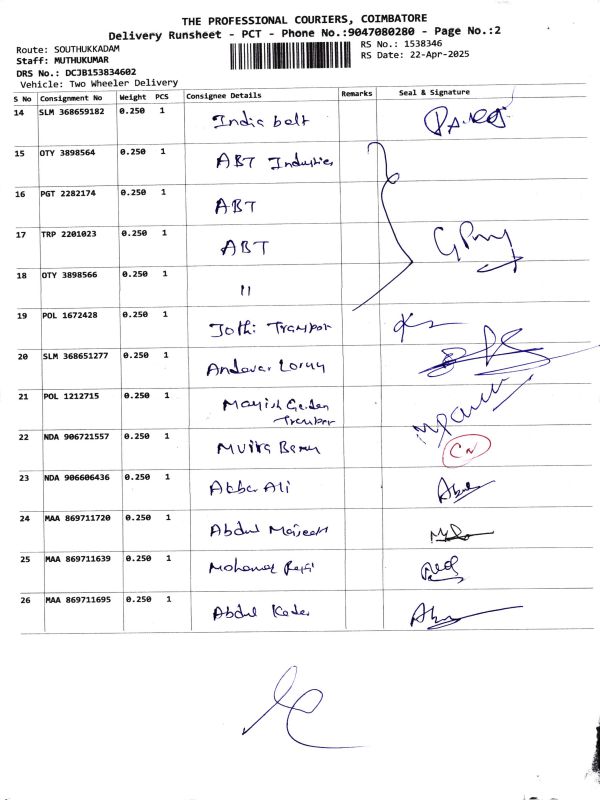 THE PROFESSIONAL COURIERS, COIMBATORE
Delivery Runsheet - PCT - Phone No.:9047080280 - Page No.:2
Route: SOUTHUKKADAM
RS No.: 1538346
Staff: MUTHUKUMAR
RS Date: 22-Apr-2025
DRS No.: DCJB153834602
Vehicle: Two Wheeler Delivery
S No Consignment No Weight PCS Consignee Details Remarks Seal & Signature
14 SLM 368659182 0.250 1 India belt
15 OTY 3898564 0.250 1 ABT Industries
16 PGT 2282174 0.250 1 ABT
17 TRP 2201023 0.250 1 ABT
18 OTY 3898566 0.250 1 "
19 POL 1672428 0.250 1 Jothi Transpor
20 SLM 368651277 0.250 1 Andavar Lorry
21 POL 1212715 0.250 1
22 NDA 906721557 0.250 1 CN
23 NDA 906606436 0.250 1 Akbar Ali
24 MAA 869711720 0.250 1 Abdul
25 MAA 869711639 0.250 1 Mohamed Rafi
26 MAA 869711695 0.250 1 Abdul Kader